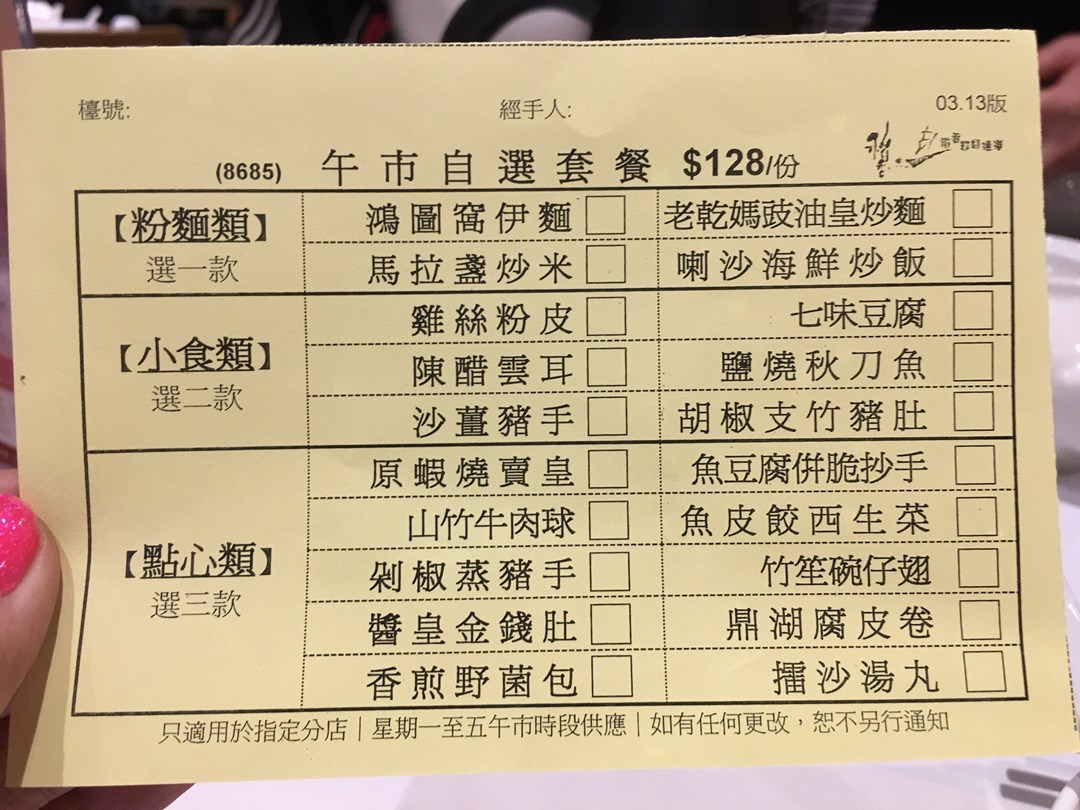 檯號: 經手人: 03.13版
(8685) 午市自選套餐 $128/份
【粉麵類】
選一款
鴻圖窩伊麵 老乾媽豉油皇炒麵
馬拉盞炒米 喇沙海鮮炒飯
【小食類】
選二款
雞絲粉皮 七味豆腐
陳醋雲耳 鹽燒秋刀魚
沙薑豬手 胡椒支竹豬肚
【點心類】
選三款
原蝦燒賣皇 魚豆腐併脆抄手
山竹牛肉球 魚皮餃西生菜
剁椒蒸豬手 竹笙碗仔翅
醬皇金錢肚 鼎湖腐皮卷
香煎野菌包 擂沙湯丸
只適用於指定分店｜星期一至五午市時段供應｜如有任何更改，恕不另行通知